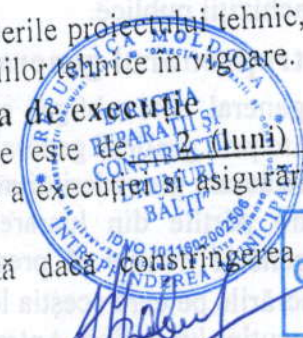 erile proiectului tehnic,
iilor tehnice în vigoare.
a de execuție
e este de 2 (luni)
a execuției si asigurăr
ă dacă constringerea
REPUBLICA MOLDOVA
DIRECȚIA
REPARAȚII ȘI
CONSTRUCȚII
DRUMURI
BĂLȚI
IDNO 1011602002506
ÎNTREPRINDEREA MUNICIPA